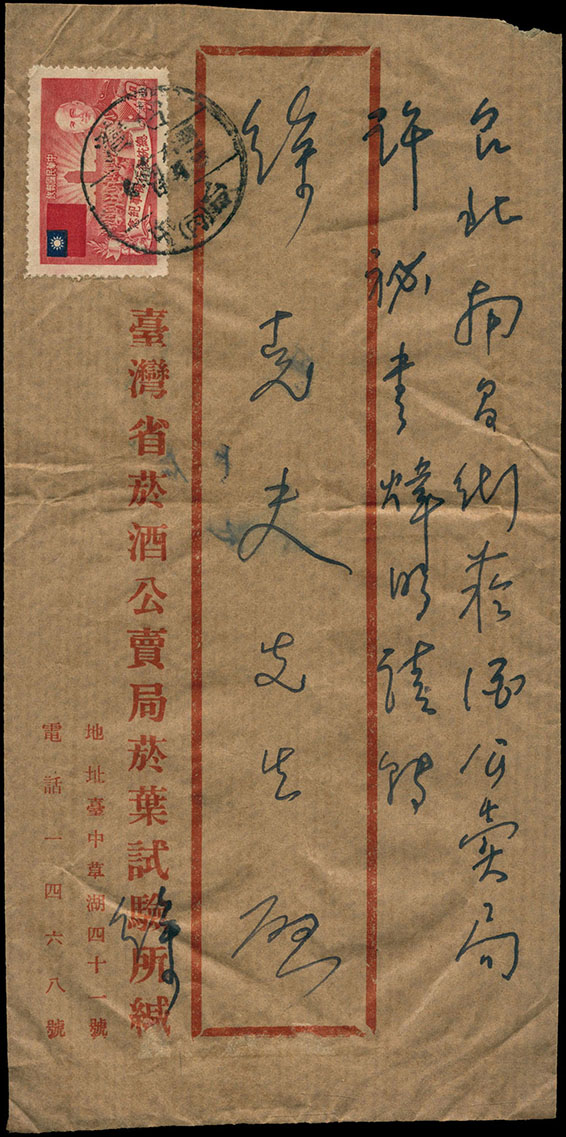 台北南昌街菸酒公賣局
許祕書煒明請轉
徐堯夫先生 啟
臺灣省菸酒公賣局菸葉試驗所緘
徐
地址臺中草湖四十一號
電話一四六八號
中華民國郵政